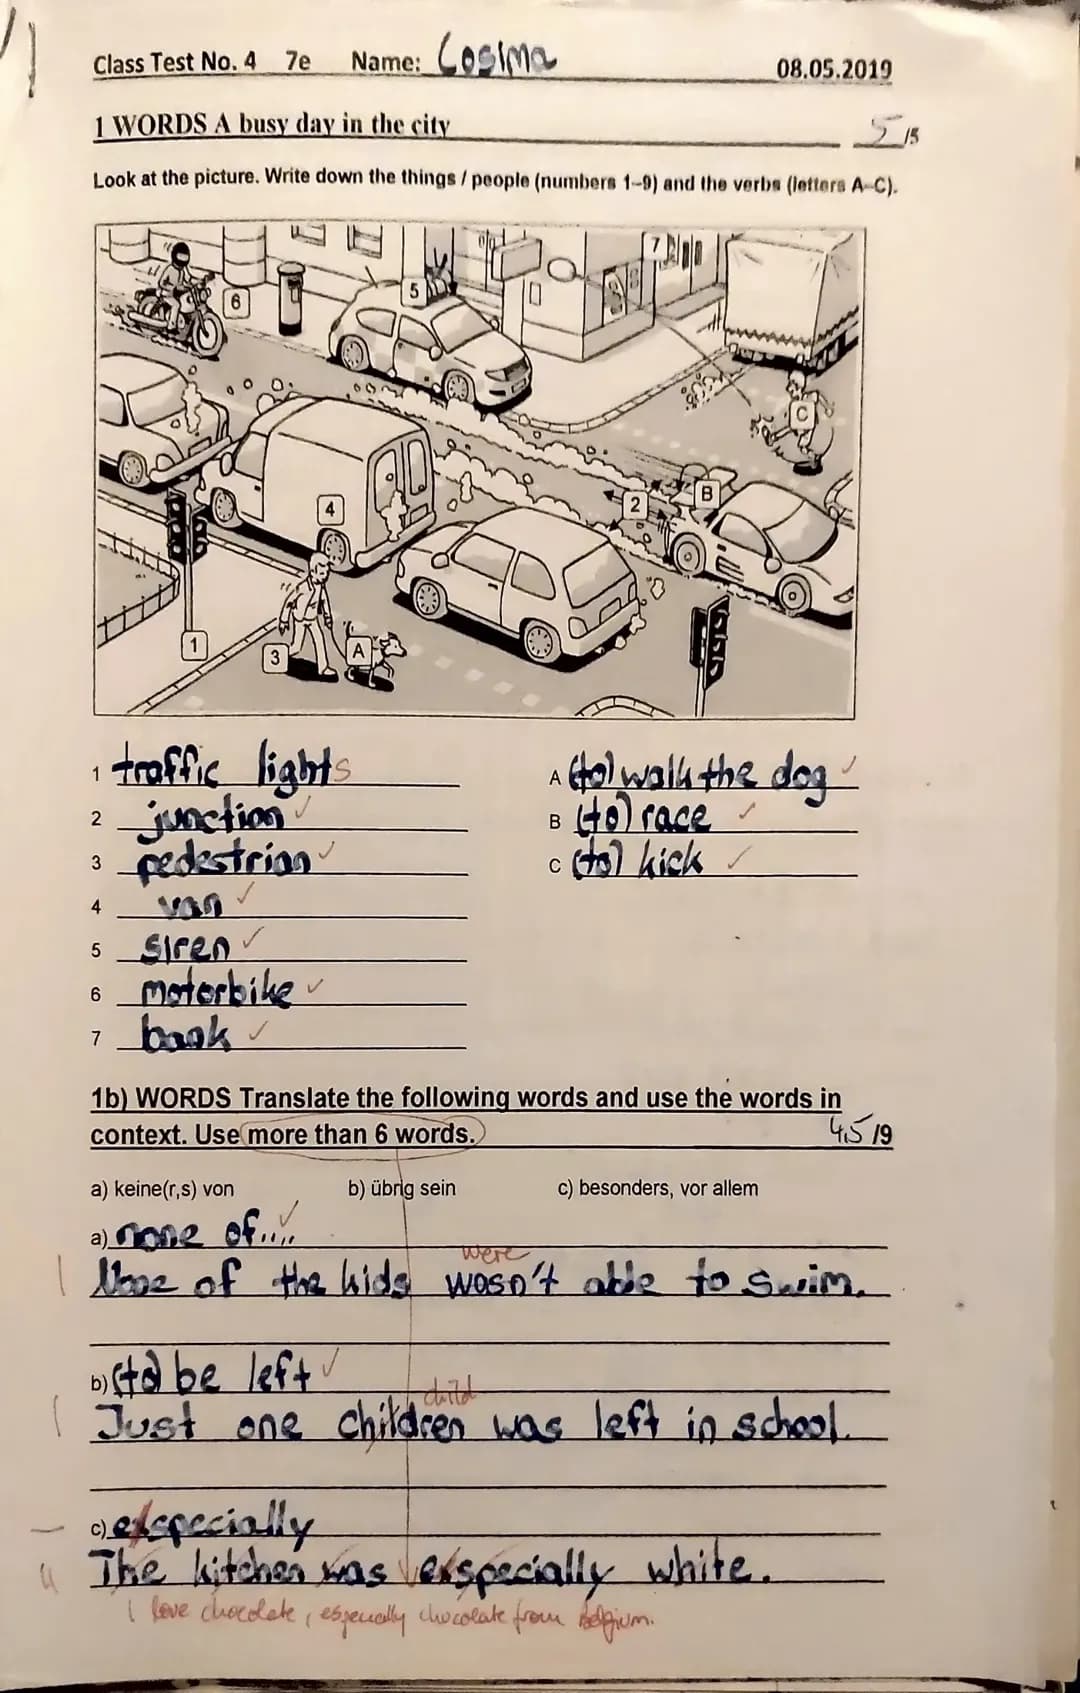 Class Test No. 4 7e Name: Cosima 08.05.2019
1 WORDS A busy day in the city 5 /5
Look at the picture. Write down the things / people (numbers 1-9) and the verbs (letters A-C).
7
5
6
C
B
2
4
1
3
A
1 traffic lights
2 junction
3 pedestrian
4 van
5 siren
6 motorbike
7 bank
A (to) walk the dog
B (to) race
C (to) kick
1b) WORDS Translate the following words and use the words in
context. Use more than 6 words. 4,5 /9
a) keine(r,s) von b) übrig sein c) besonders, vor allem
a) none of.....
were
None of the kids wasn't able to swim.
b) (to) be left
child
Just one children was left in school.
c) exspecially
The kitchen was exspecially white.
I love chocolate, especially chocolate from Belgium.